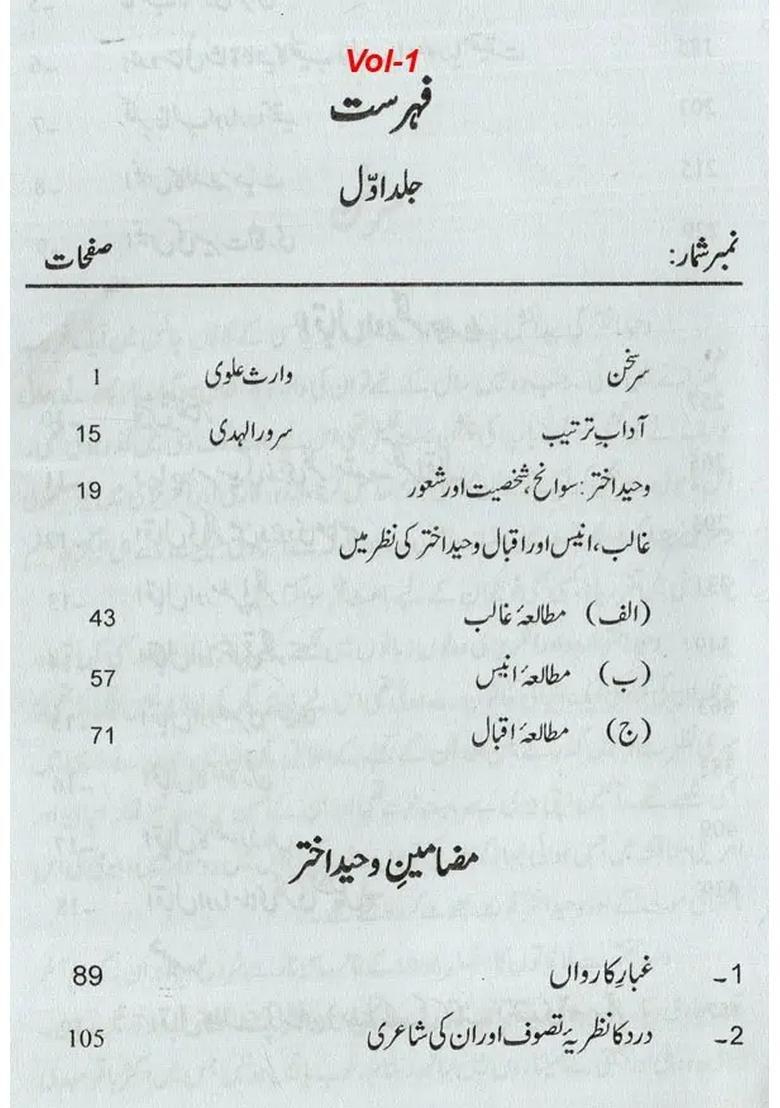 Vol-1
فہرست
جلد اوّل
نمبر شمار: صفحات
سرِسخن وارث علوی 1
آدابِ ترتیب سرورالہدیٰ 15
وحید اختر: سوانح، شخصیت اور شعور 19
غالب، انیس اور اقبال وحید اختر کی نظر میں
(الف) مطالعۂ غالب 43
(ب) مطالعۂ انیس 57
(ج) مطالعۂ اقبال 71
مضامینِ وحید اختر
1۔ غبارِ کارواں 89
2۔ درد کا نظریۂ تصوف اور ان کی شاعری 105